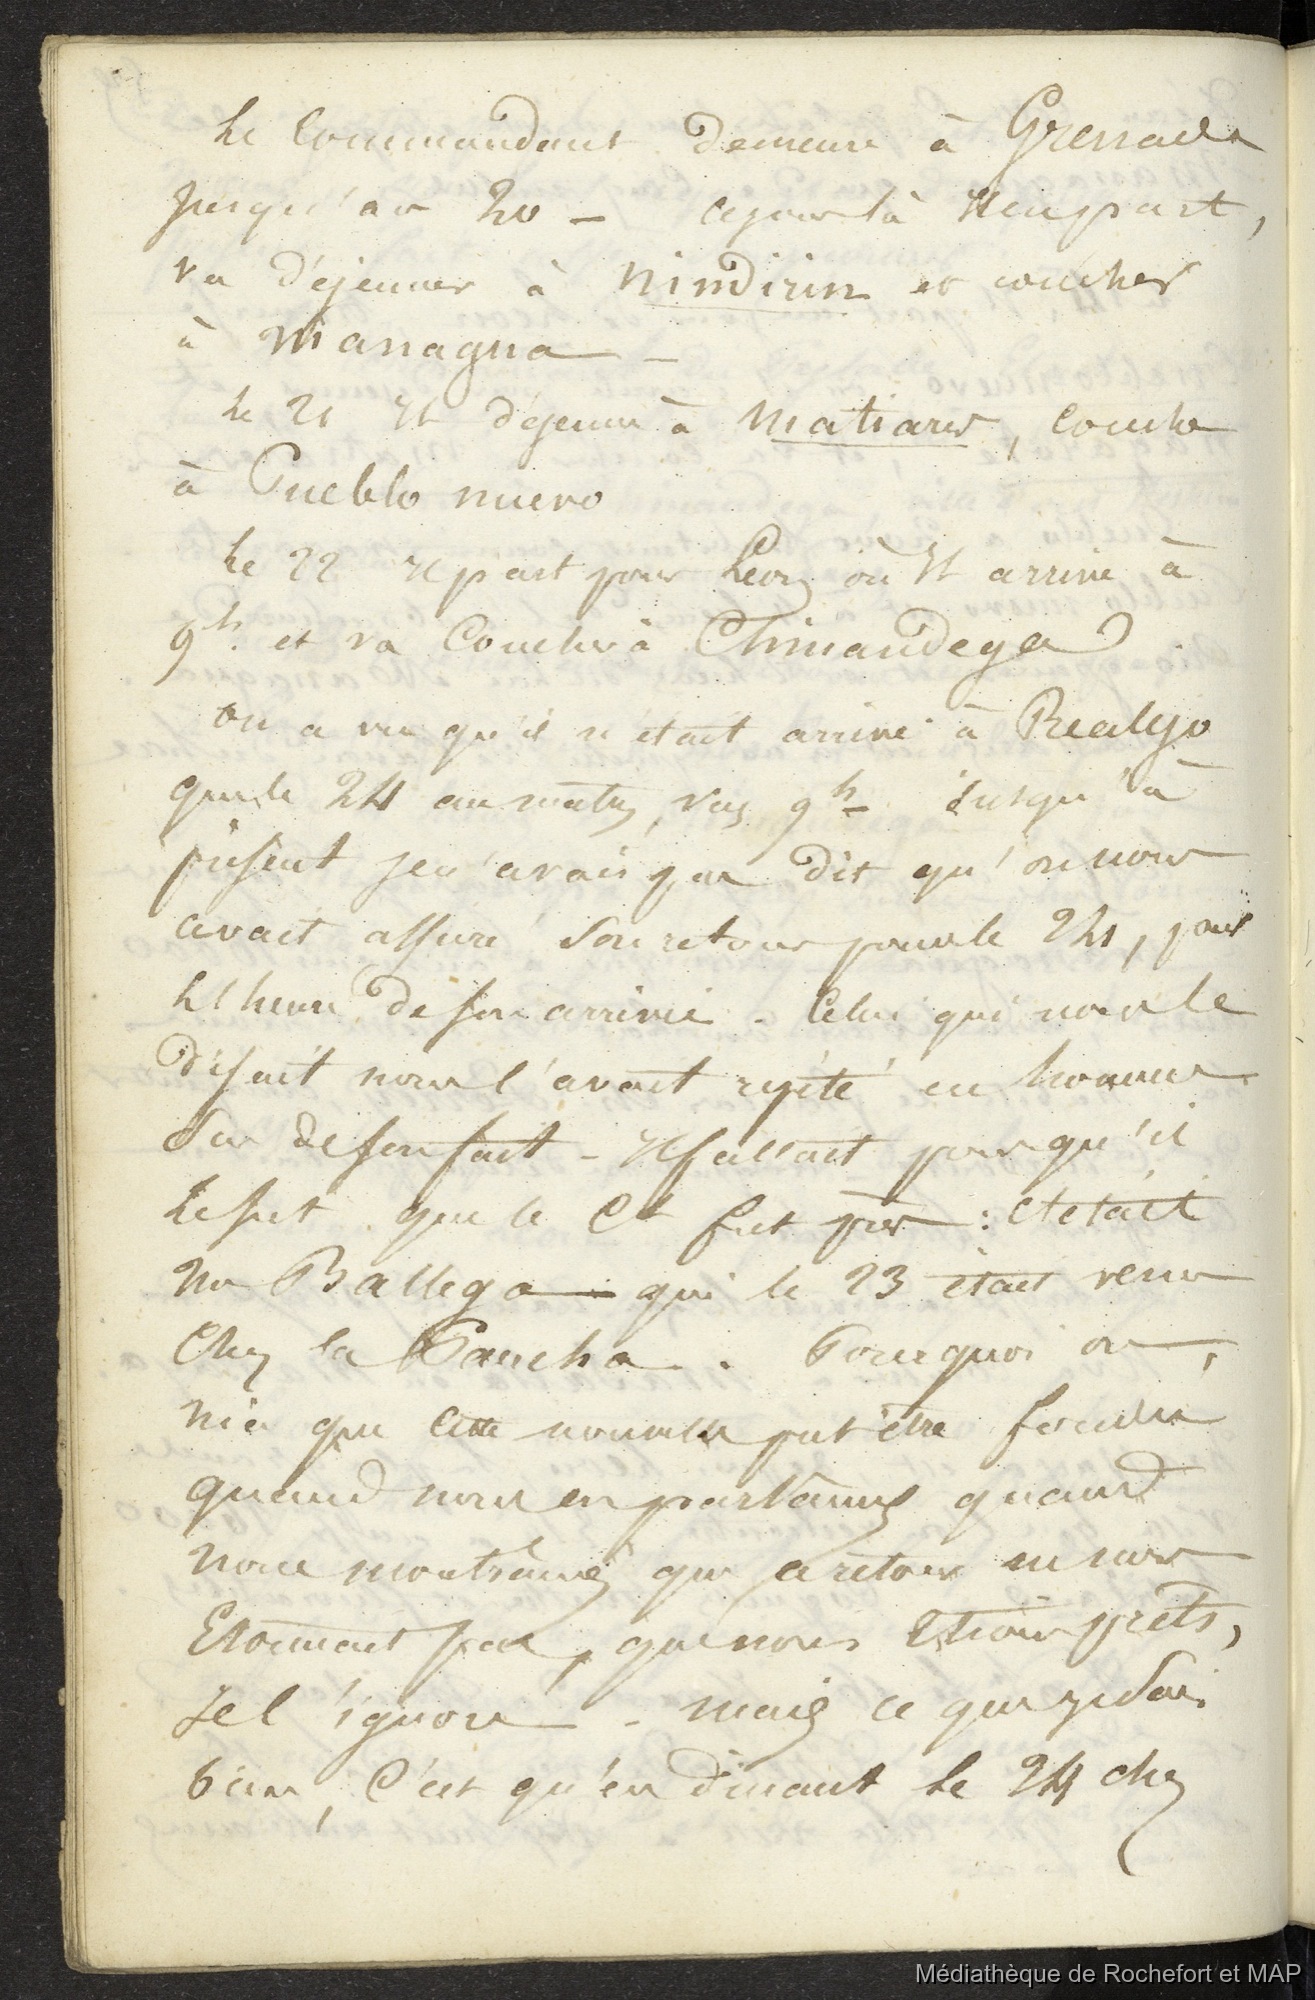 Le Commandant demeure à Grenade
jusqu'au 20 – ce jour là il en part,
va déjeuner à Nindirin et coucher
à Managua –
Le 21 il déjeune à Matiares, couche
à Pueblo nuevo
Le 22 il part pour Léon où il arrive à
9h. et va Coucher à Chinandega
on a vu qu'il n'était arrivé à Realejo
que le 24 au matin, vers 9h – jusqu'à
présent je n'avais pas dit qu'on nous
avait assuré son retour pour le 24, pour
l'heure de son arrivée. Celui qui nous le
disait nous l'avait répété en homme
sur de son fait – il fallait pour qu'il
le fut que le Ct fut près : C'était
Mr Ballega – qui le 23 était venu
Chez la Pancha. Pourquoi on
nia que cette nouvelle put être fondée
quand nous en parlâmes quand
nous montrâmes que ce retour en nous
Etonnant pas, que nous Etions prêts,
Je l'ignore – mais ce que je sais
bien, C'est qu'en dînant le 24 chez
Médiathèque de Rochefort et MAP